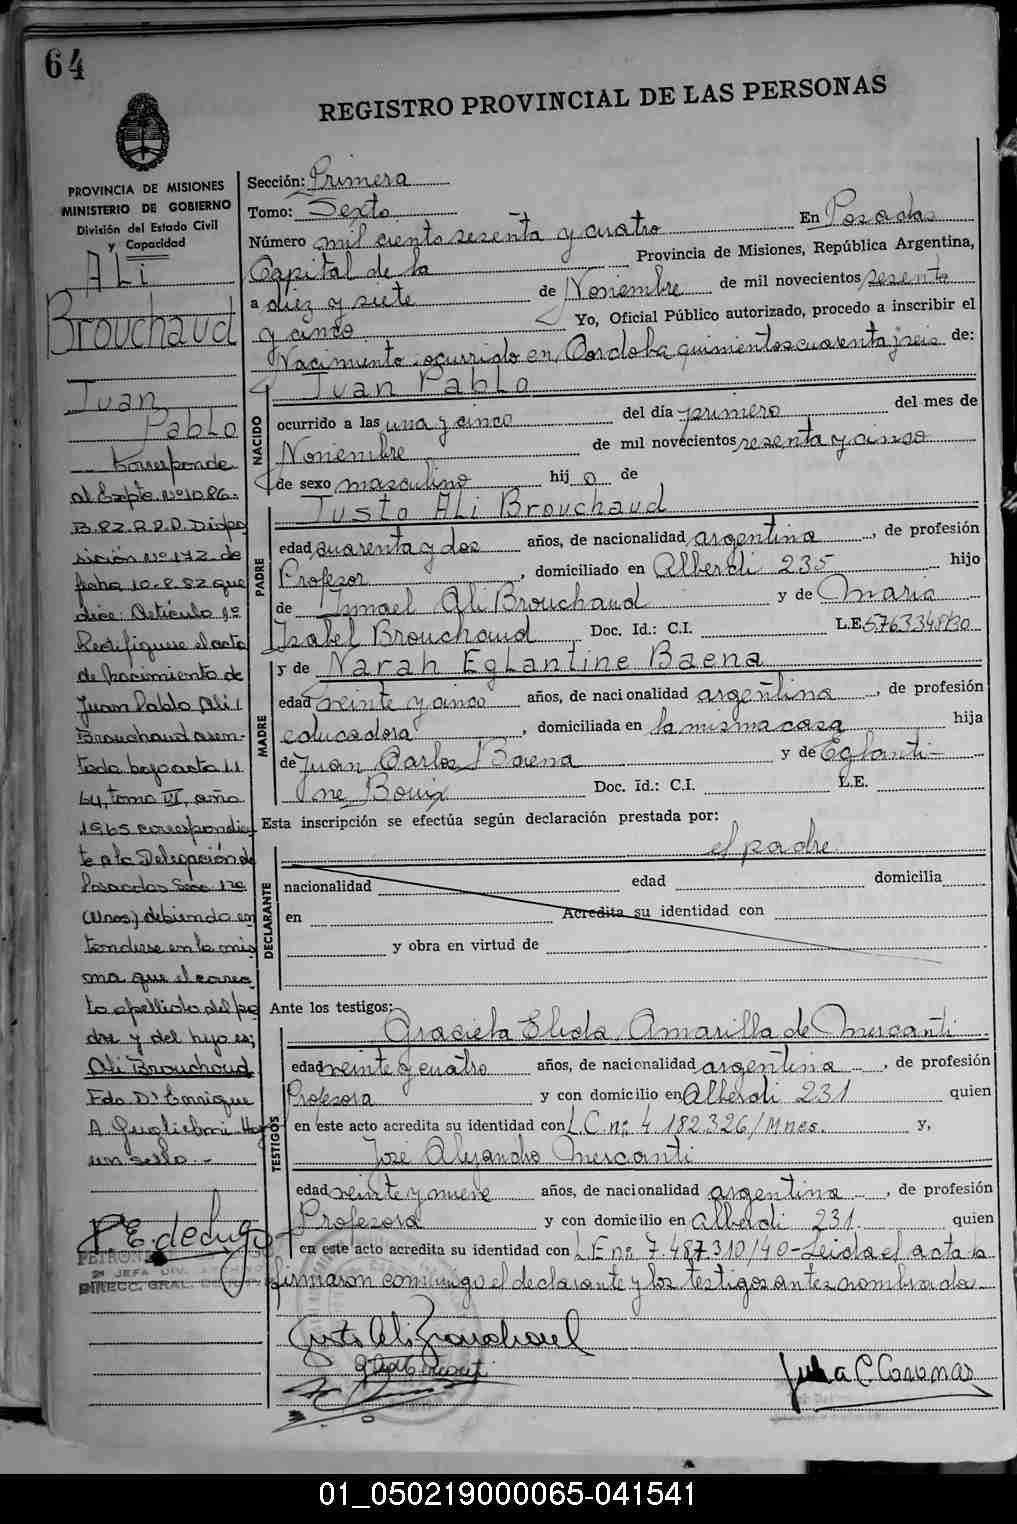 64
REGISTRO PROVINCIAL DE LAS PERSONAS
PROVINCIA DE MISIONES
MINISTERIO DE GOBIERNO
División del Estado Civil
y Capacidad
ALi
Brouchaud
Juan
Pablo
Corresponde
al Expte. Nº 1086-
B.82.R.P.P. Dispo
sición Nº 172 de
fecha 10-8-82 que
dice: Artículo 1º
Rectifíquese el acta
de Nacimiento de
Juan Pablo Ali
Brouchaud asen-
tada bajo acta 11
64, tomo VI, año
1965 correspondien
te a la Delegación de
Posadas Secc 1ra
(Mnes) debiendo en
tenderse en la mis
ma que el correc
to apellido del pa
dre y del hijo es;
Ali Brouchaud
Fdo Dr Enrique
A. Guglielmi Hay
un sello.-
P.E. de Lugo
PETRONA
2ª JEFA DIV.
DIRECC. GRAL.
Sección: Primera
Tomo: Sexto
Número mil ciento sesenta y cuatro En Posadas
Capital de la Provincia de Misiones, República Argentina,
a diez y siete de Noviembre de mil novecientos sesenta
y cinco Yo, Oficial Público autorizado, procedo a inscribir el
Nacimiento ocurrido en, Cordoba quinientos cuarenta y seis de:
NACIDO
Juan Pablo
ocurrido a las una y cinco del día primero del mes de
Noviembre de mil novecientos sesenta y cinco
de sexo masculino hij o de
PADRE
Justo Ali Brouchaud
edad cuarenta y dos años, de nacionalidad argentina, de profesión
Profesor, domiciliado en Alberdi 235 hijo
de Ismael Ali Brouchaud y de Maria
Isabel Brouchaud Doc. Id.: C.I. L.E.
MADRE
y de Narah Eglantine Baena
edad veinte y cinco años, de nacionalidad argentina, de profesión
educadora, domiciliada en la misma casa hija
de Juan Carlos Baena y de Eglanti-
ne Bouix Doc. Id.: C.I. L.E.
Esta inscripción se efectúa según declaración prestada por:
el padre
DECLARANTE
nacionalidad edad domicilia
en Acredita su identidad con
y obra en virtud de
Ante los testigos:
TESTIGOS
Graciela Elida Amarilla de Mercanti
edad veinte y cuatro años, de nacionalidad argentina, de profesión
Profesora y con domicilio en Alberdi 231 quien
en este acto acredita su identidad con L.C. nº 4.182.326/Mnes. y,
José Alejandro Mercanti
edad veinte y nueve años, de nacionalidad argentina, de profesión
Profesora y con domicilio en Alberdi 231. quien
en este acto acredita su identidad con L.E nº 7.487.310/40-Leida el acta la
firmaron conmingo el declarante y los testigos antes nombrados
Justo Ali Brouchaud
Julia C. Coronas
01_050219000065-041541